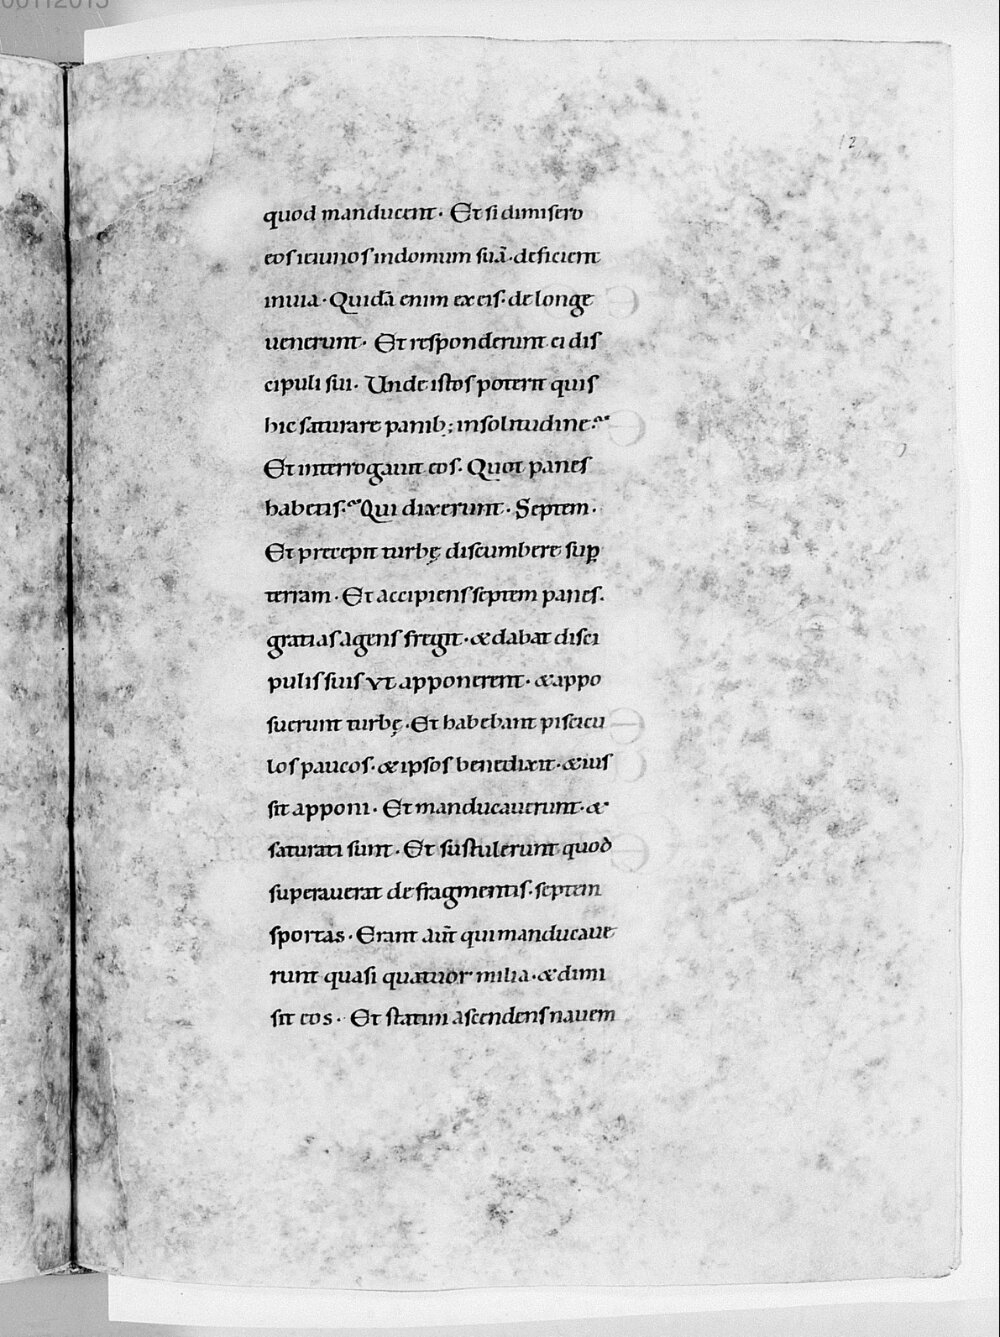 00112015
12
quod manducent· Et si dimisero
eos ieiunos indomum suā· deficient
inuia· Quidā enim ex eis· de longe
uenerunt· Et responderunt ei dis
cipuli sui· Unde istos poterit quis
hic saturare panib; insolitudine?
Et interrogauit eos· Quot panes
habetis? Qui dixerunt· Septem·
Et precepit turbę discumbere sup̱
terram· Et accipiens septem panes·
gratias agens fregit· & dabat disci
pulis suis vt apponerent· & appo
suerunt turbę· Et habebant piscicu
los paucos· & ipsos benedixit· & ius
sit apponi· Et manducauerunt· &
saturati sunt· Et sustulerunt quod
superauerat de fragmentis· septem
sportas· Erant aut̄ qui manducaue
runt quasi quatuor milia· & dimi
sit eos· Et statim ascendens nauem